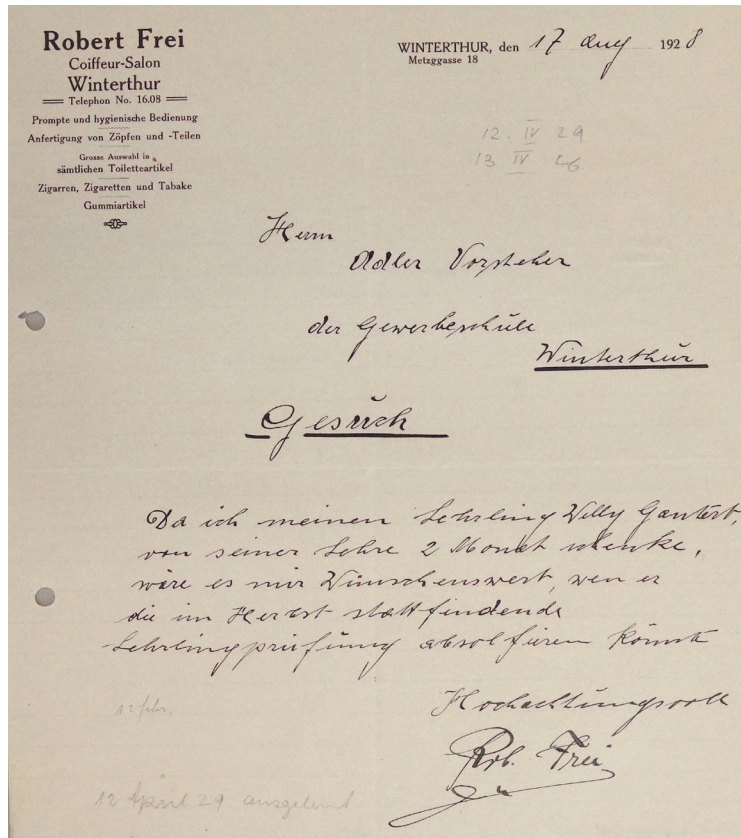 Robert Frei
Coiffeur-Salon
Winterthur
Telephon No. 16.08
Prompte und hygienische Bedienung
Anfertigung von Zöpfen und -Teilen
Grosse Auswahl in
sämtlichen Toiletteartikel
Zigarren, Zigaretten und Tabake
Gummiartikel
WINTERTHUR, den 17 Aug 1928
Metzggasse 18
12. IV 29
13 IV 26
Herrn
Adler Vorsteher
der Gewerbeschule
Winterthur
Gesuch
Da ich meinen Lehrling Willy Gantert,
von seiner Lehre 2 Monat schenke,
wäre es mir Wünschenswert, wen er
die im Herbst stattfindende
Lehrlingprüfung absolfüren könnte
Hochachtungsvoll
Rob. Frei
12 febr.
12 April 29 ausgelernt